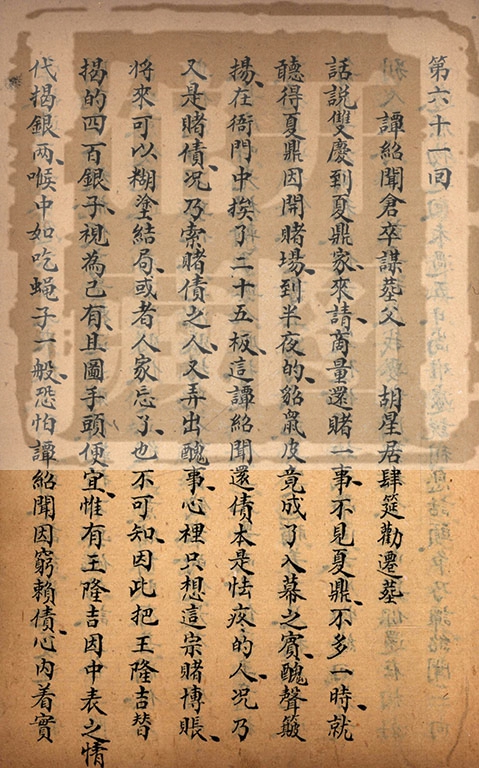 第六十一回
譚紹聞倉卒謀葬父　胡星居肆筵勸遷葬
話說雙慶到夏鼎家、來請商量還賭一事、不見夏鼎、不多一時、就
聽得夏鼎因開賭場、到半夜的貂鼠皮竟成了入幕之賓、醜聲簸
揚、在衙門中挨了二十五板、這譚紹聞還債本是怯疼的人、况乃
又是賭債、况乃索賭債之人、又弄出醜事、心裡只想這宗賭博賬、
將來可以糊塗結局、或者人家忘了、也不可知、因此把王隆吉替
揭的四百銀子、視為己有、且圖手頭便宜、惟有王隆吉因中表之情
代揭銀兩、喉中如吃蝿子一般、恐怕譚紹聞因窮賴債、心内着實